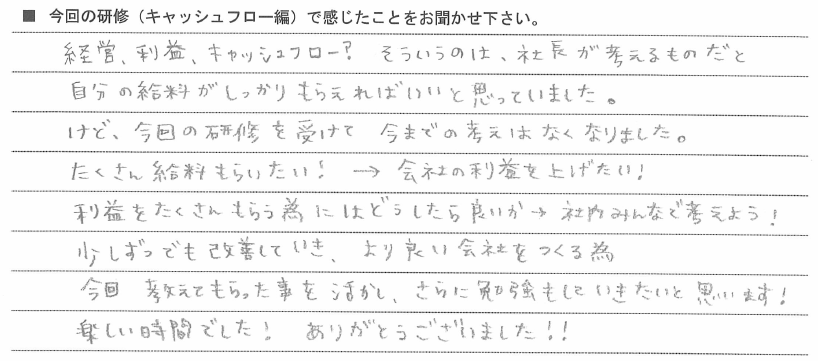 ■ 今回の研修（キャッシュフロー編）で感じたことをお聞かせ下さい。
経営、利益、キャッシュフロー? そういうのは、社長が考えるものだと
自分の給料がしっかりもらえればいいと思っていました。
けど、今回の研修を受けて 今までの考えはなくなりました。
たくさん給料もらいたい! → 会社の利益を上げたい!
利益をたくさんもらう為にはどうしたら良いか→ 社内みんなで考えよう!
少しずつでも改善していき、より良い会社をつくる為
今回 教えてもらった事を活かし、さらに勉強もしていきたいと思います!
楽しい時間でした! ありがとうございました!!